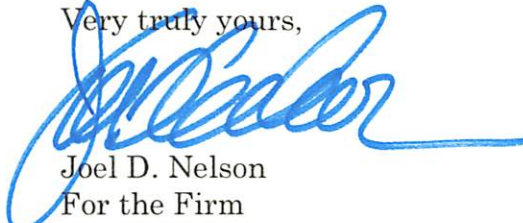 Very truly yours,
Joel D. Nelson
For the Firm